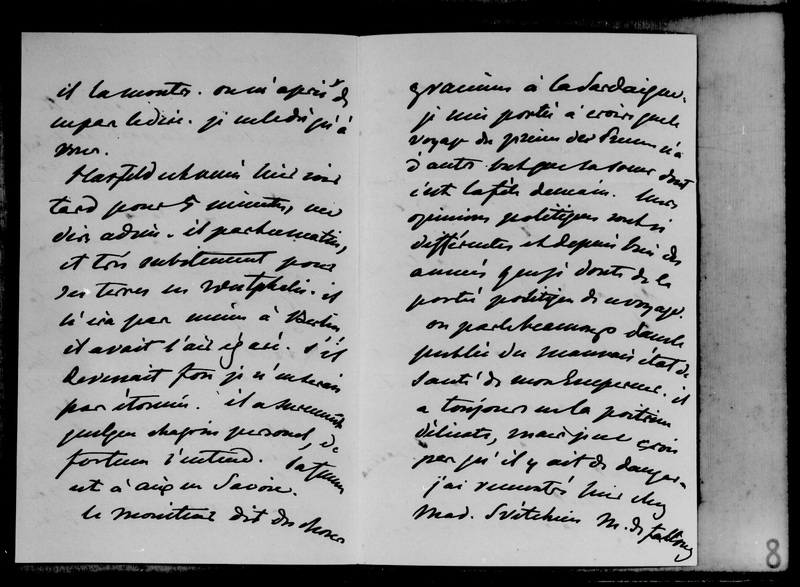 il la montre. on m'a prié de
n'en par le dire. je ne le dis qu'à
vous.
Hatzfeld est venu hier soir
tard pour 5 minutes, me
dire adieu. il part ce matin,
et très subitement pour
ses terres en Westphalie. il
n'ira pas même à Berlin
il avait l'air égaré. s'il
devenait fou je n'en serais
pas étonnée. il a surement
quelque chagrin personnel, de
fortune s'entend. sa femme
est à aix en Savoie.
le moniteur dit des choses
gracieuses à la Sardaigne.
je suis portée à croire que le
voyage du prince de Prusse n'a
d'autre but que sa soeur dont
c'est la fête demain. leurs
opinions politiques sont si
différentes et depuis bien des
années que je doute de la
portée politique de ce voyage.
on parle beaucoup dans le
public du mauvais état de
santé de mon Empereur. il
a toujours eu la poitrine
délicate, mais je ne crois
pas qu'il y ait de danger.
j'ai rencontré hier chez
Mad. Svétchine M. de falloux
8